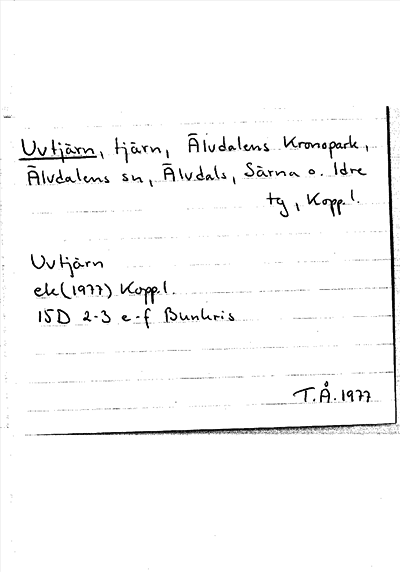 Uvtjärn, tjärn, Älvdalens Kronopark,
Älvdalens sn, Älvdals, Särna o. Idre
tg, Kopp.l.
Uvtjärn
ek(1977) Kopp.l.
15D 2-3 e-f Bunkris
T.Å. 1977